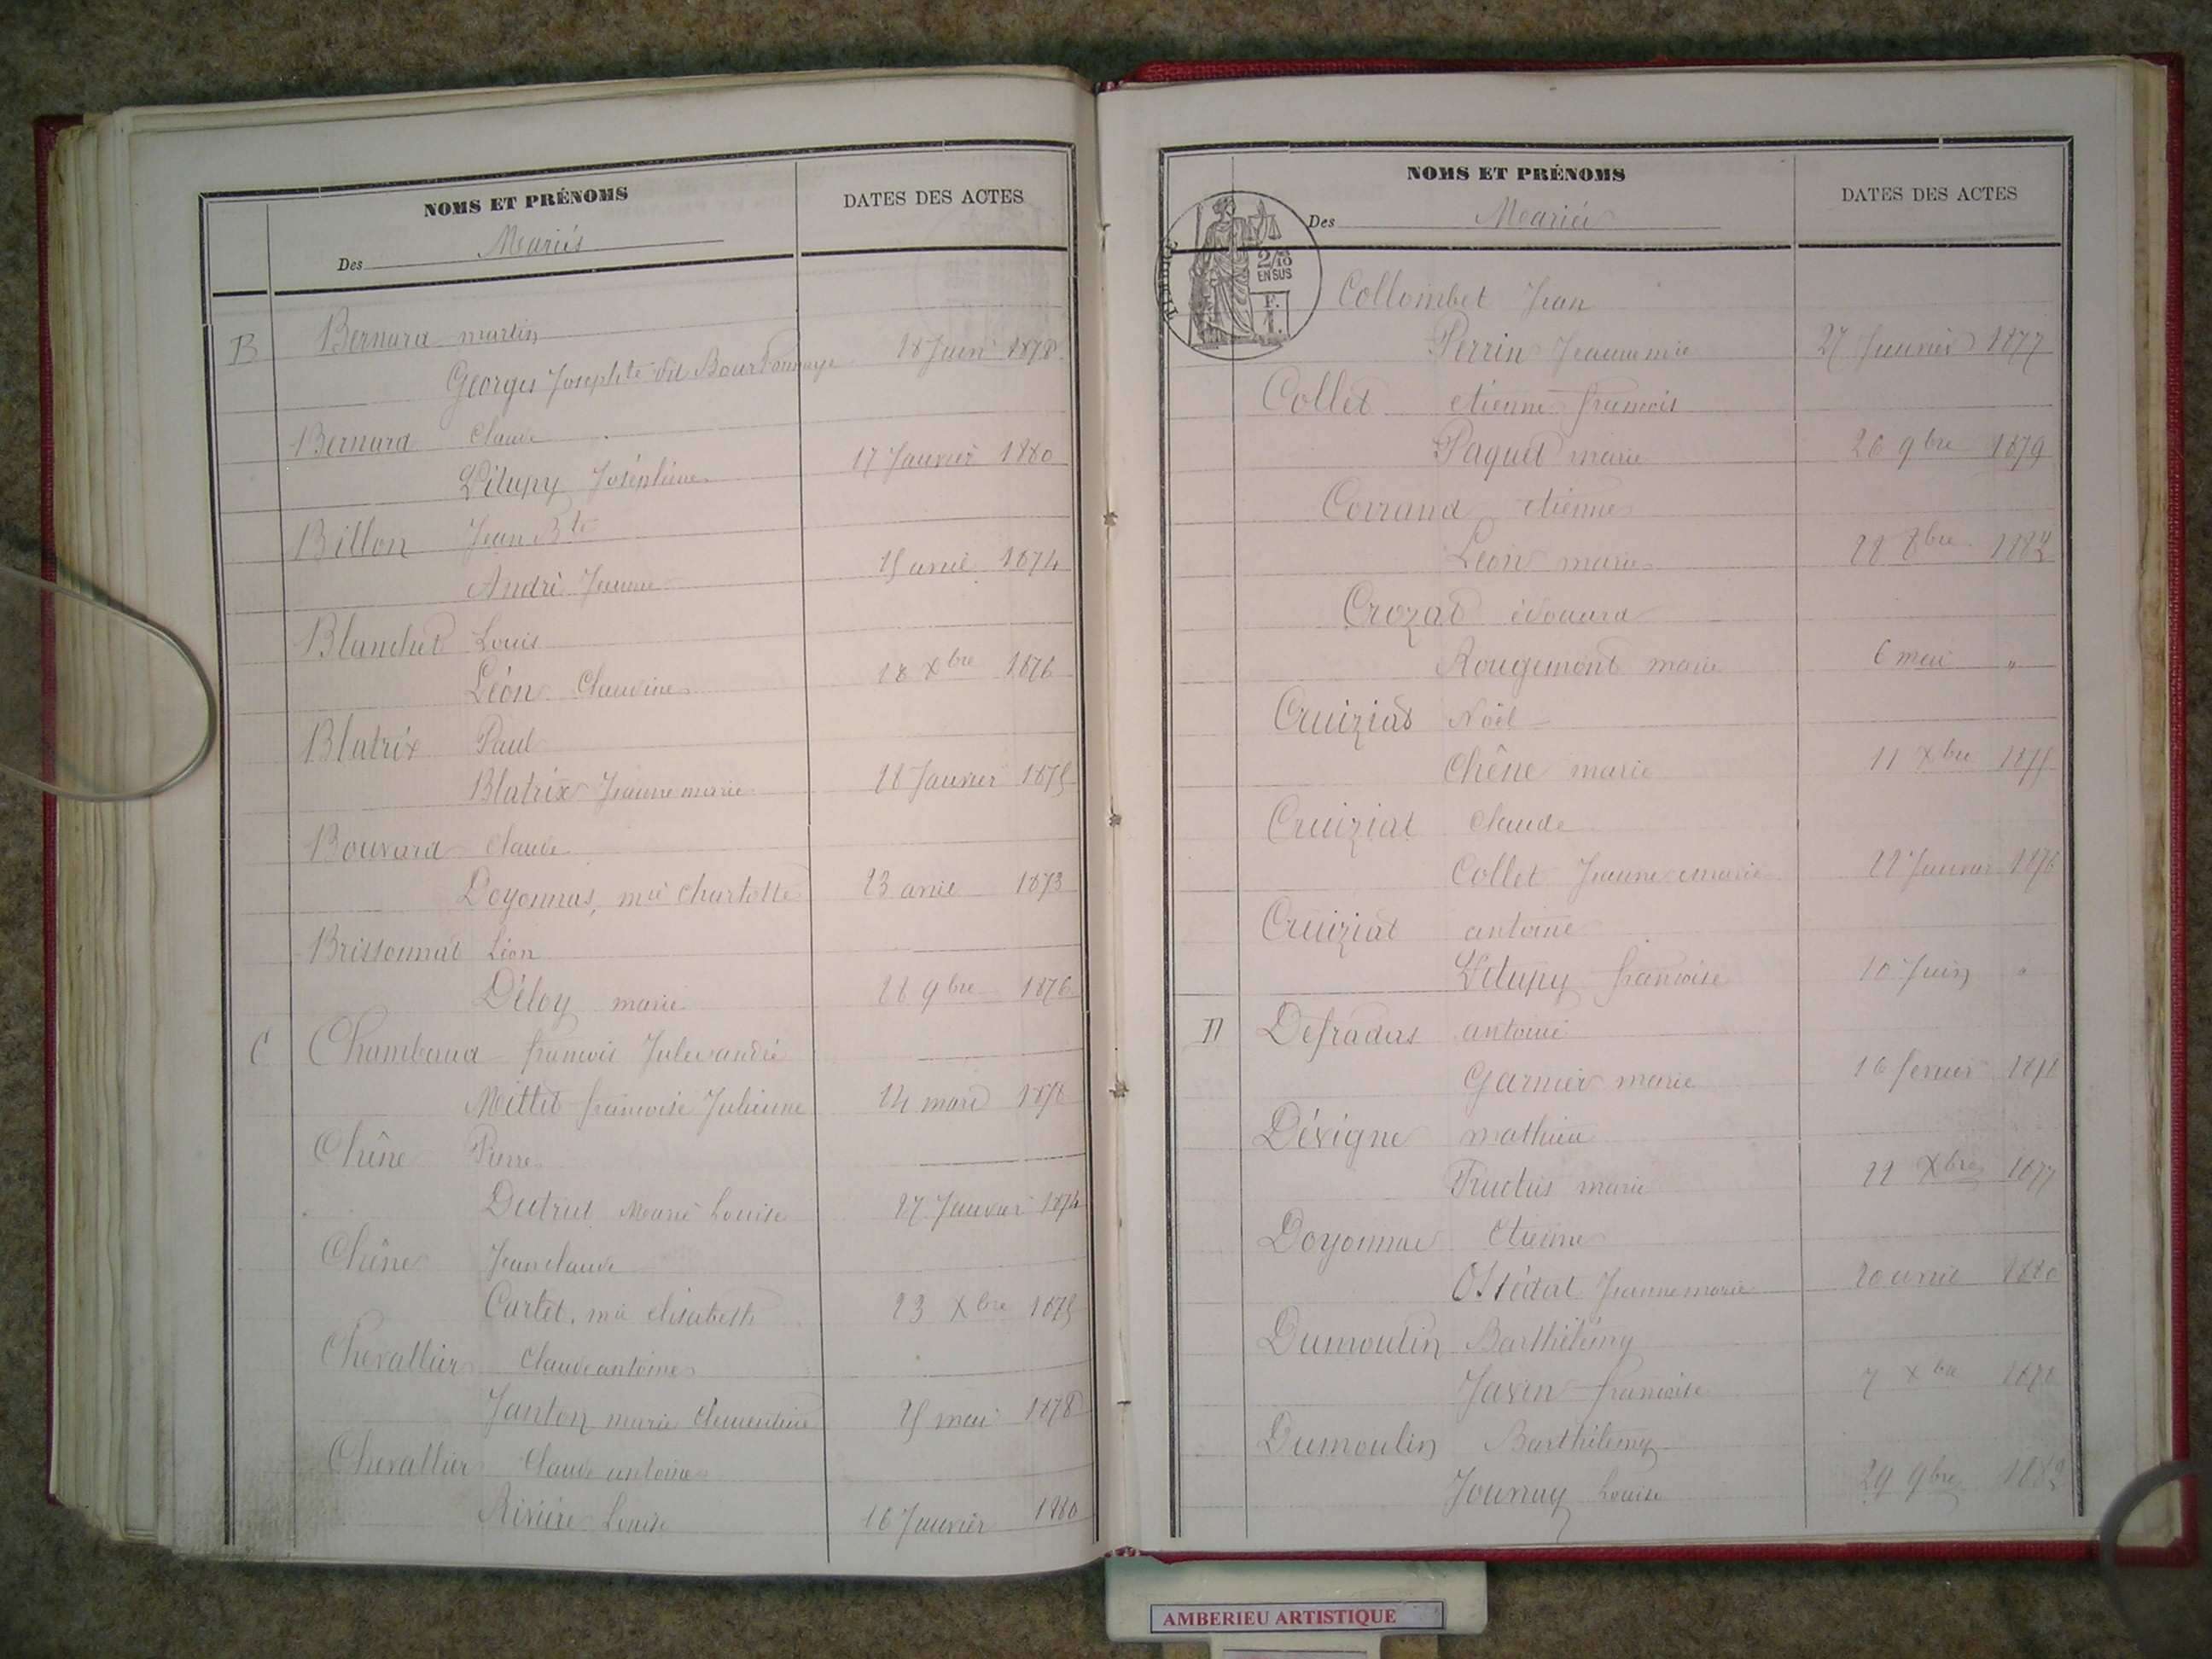 NOMS ET PRÉNOMS
DATES DES ACTES
Des Mariés
B Bernard martin
Georges Josephte dit Bourdonnaye 18 Juin 1878
Bernard Claude
Vétupy Joséphine 17 Janvier 1880
Billon Jean Bte
André Jeanne 15 avril 1874
Blanchet Louis
Léon Claudine 18 Xbre 1876
Blatrix Paul
Blatrix Jeanne marie 28 Janvier 1875
Bouvard Claude
Doyonnas, mie Charlotte 23 avril 1873
Brissonnat Léon
Déloy marie 28 9bre 1876
C Chambaud francois Jules andré
Mittet francoise Julienne 14 mars 1878
Chêne Pierre
Dutrut Marie Louise 27 Janvier 1874
Chêne Jean claude
Cartet, mie elisabeth 23 Xbre 1875
Chevallier Claude antoine
Janton marie Clementine 25 mai 1878
Chevallier Claude antoine
Rivière Louise 16 Janvier 1880
NOMS ET PRÉNOMS
DATES DES ACTES
Des Mariés
2/10
EN SUS
F.
1.
Collombet Jean
Perrin Jeanne mie 27 Janvier 1877
Collet etienne francois
Paquet marie 26 9bre 1879
Corrand etienne
Léon marie 8bre
Crozat édouard
Rougemont marie 6 mai "
Cruiziat Noël
Chêne marie 11 Xbre 1875
Cruiziat Claude
Collet Jeanne marie 22 Janvier 1876
Cruiziat antoine
Vétupy francoise 10 Juin "
D Defradas antoine
Garnier marie 16 fevrier
Dévigne mathieu
Fructus marie 22 Xbre 1877
Doyonnas Etienne
Ostédat Jeanne marie 20 avril 1880
Dumoulin Barthélemy
Javen francoise 7 Xbre 1878
Dumoulin Barthélemy
Journay Louise 29 9bre
AMBERIEU ARTISTIQUE